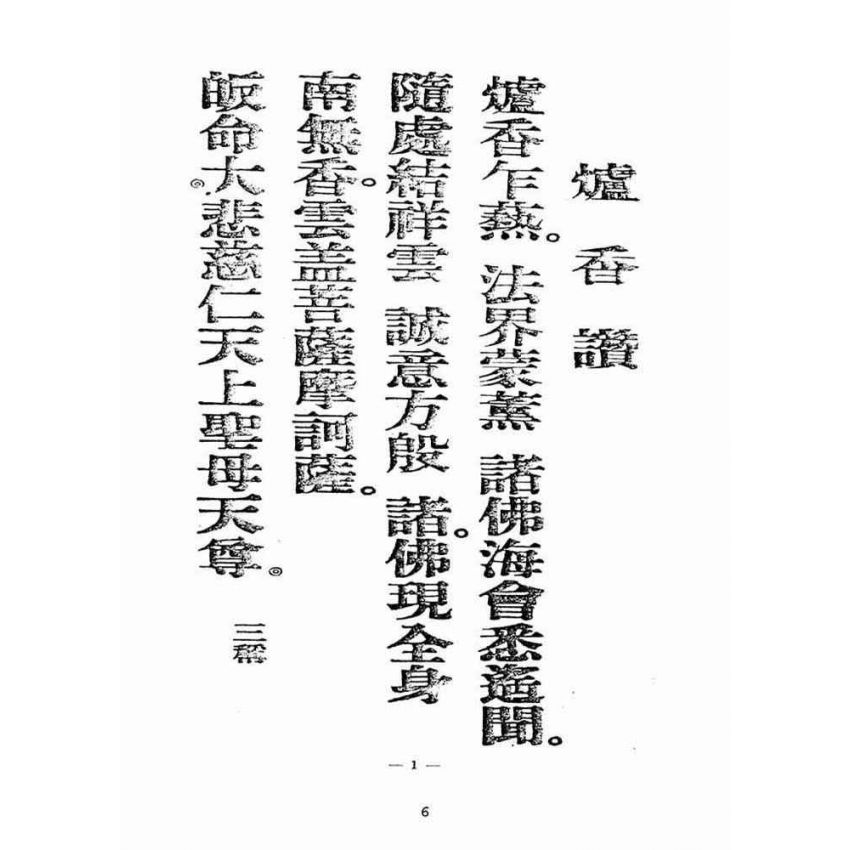 爐香讚
爐香乍熱。法界蒙薰 諸佛海會悉遙聞。
隨處結祥雲 誠意方殷 諸。佛現全身
南無香。雲盖菩薩摩訶薩。
皈命大。悲慈仁天上聖母天尊。
三稱
— 1 —
6